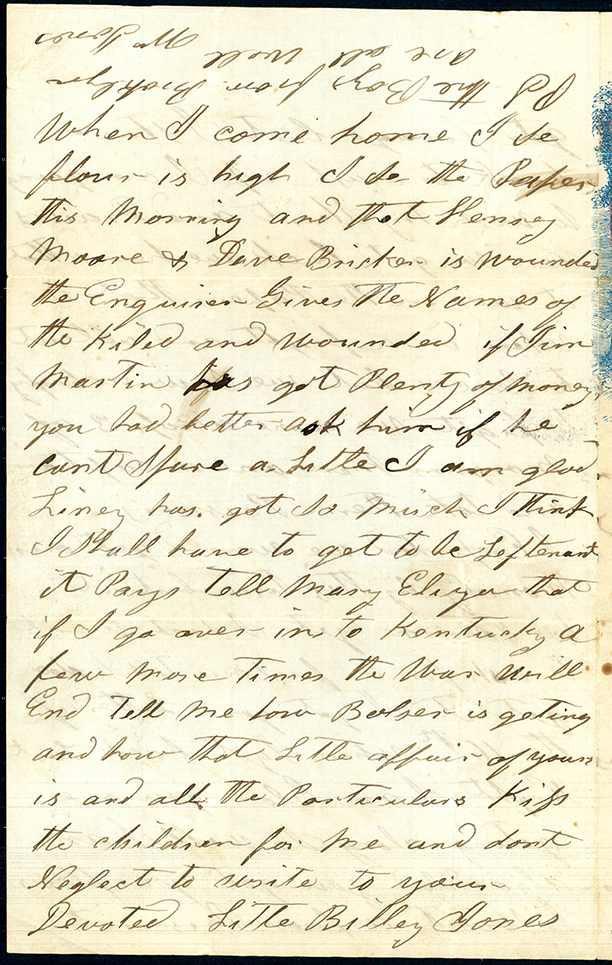 When I come home I se
flour is high I se the Paper
this Morning and that Henry
Moore & Dave Bricker is wounded
the Enquirer Gives the Names of
the Kiled and wounded if Jim
Martin has got Plenty of money
you had better ask him if he
cant Spare a Little I am glad
Liney has got So much I think
I Shall have to get to be Leftenant
it Pays Tell Mary Eliza that
if I go over in to Kentucky a
few more Times the War will
End Tell me how Bolser is geting
and how that Little affair of yours
is and all the Particulars Kiss
the children for me and dont
Neglect to write to your
Devoted Little Billey Jones
PS the Boys from Brooklyn
are all Well
Wm Jones